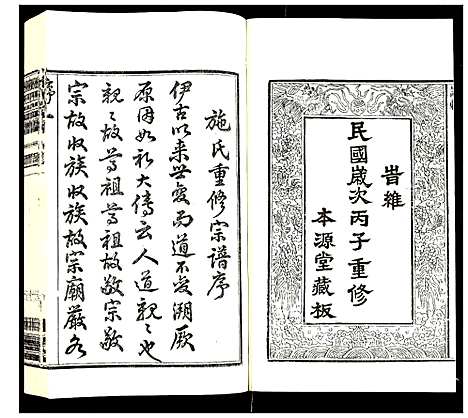 旹維
民國歲次丙子重修
本源堂藏板
施氏重修宗譜序
伊古以来世變而道不變溯厥
原因如禮大傳云人道親〻也
親〻故尊祖尊祖故敬宗敬
宗故收族收族故宗廟嚴